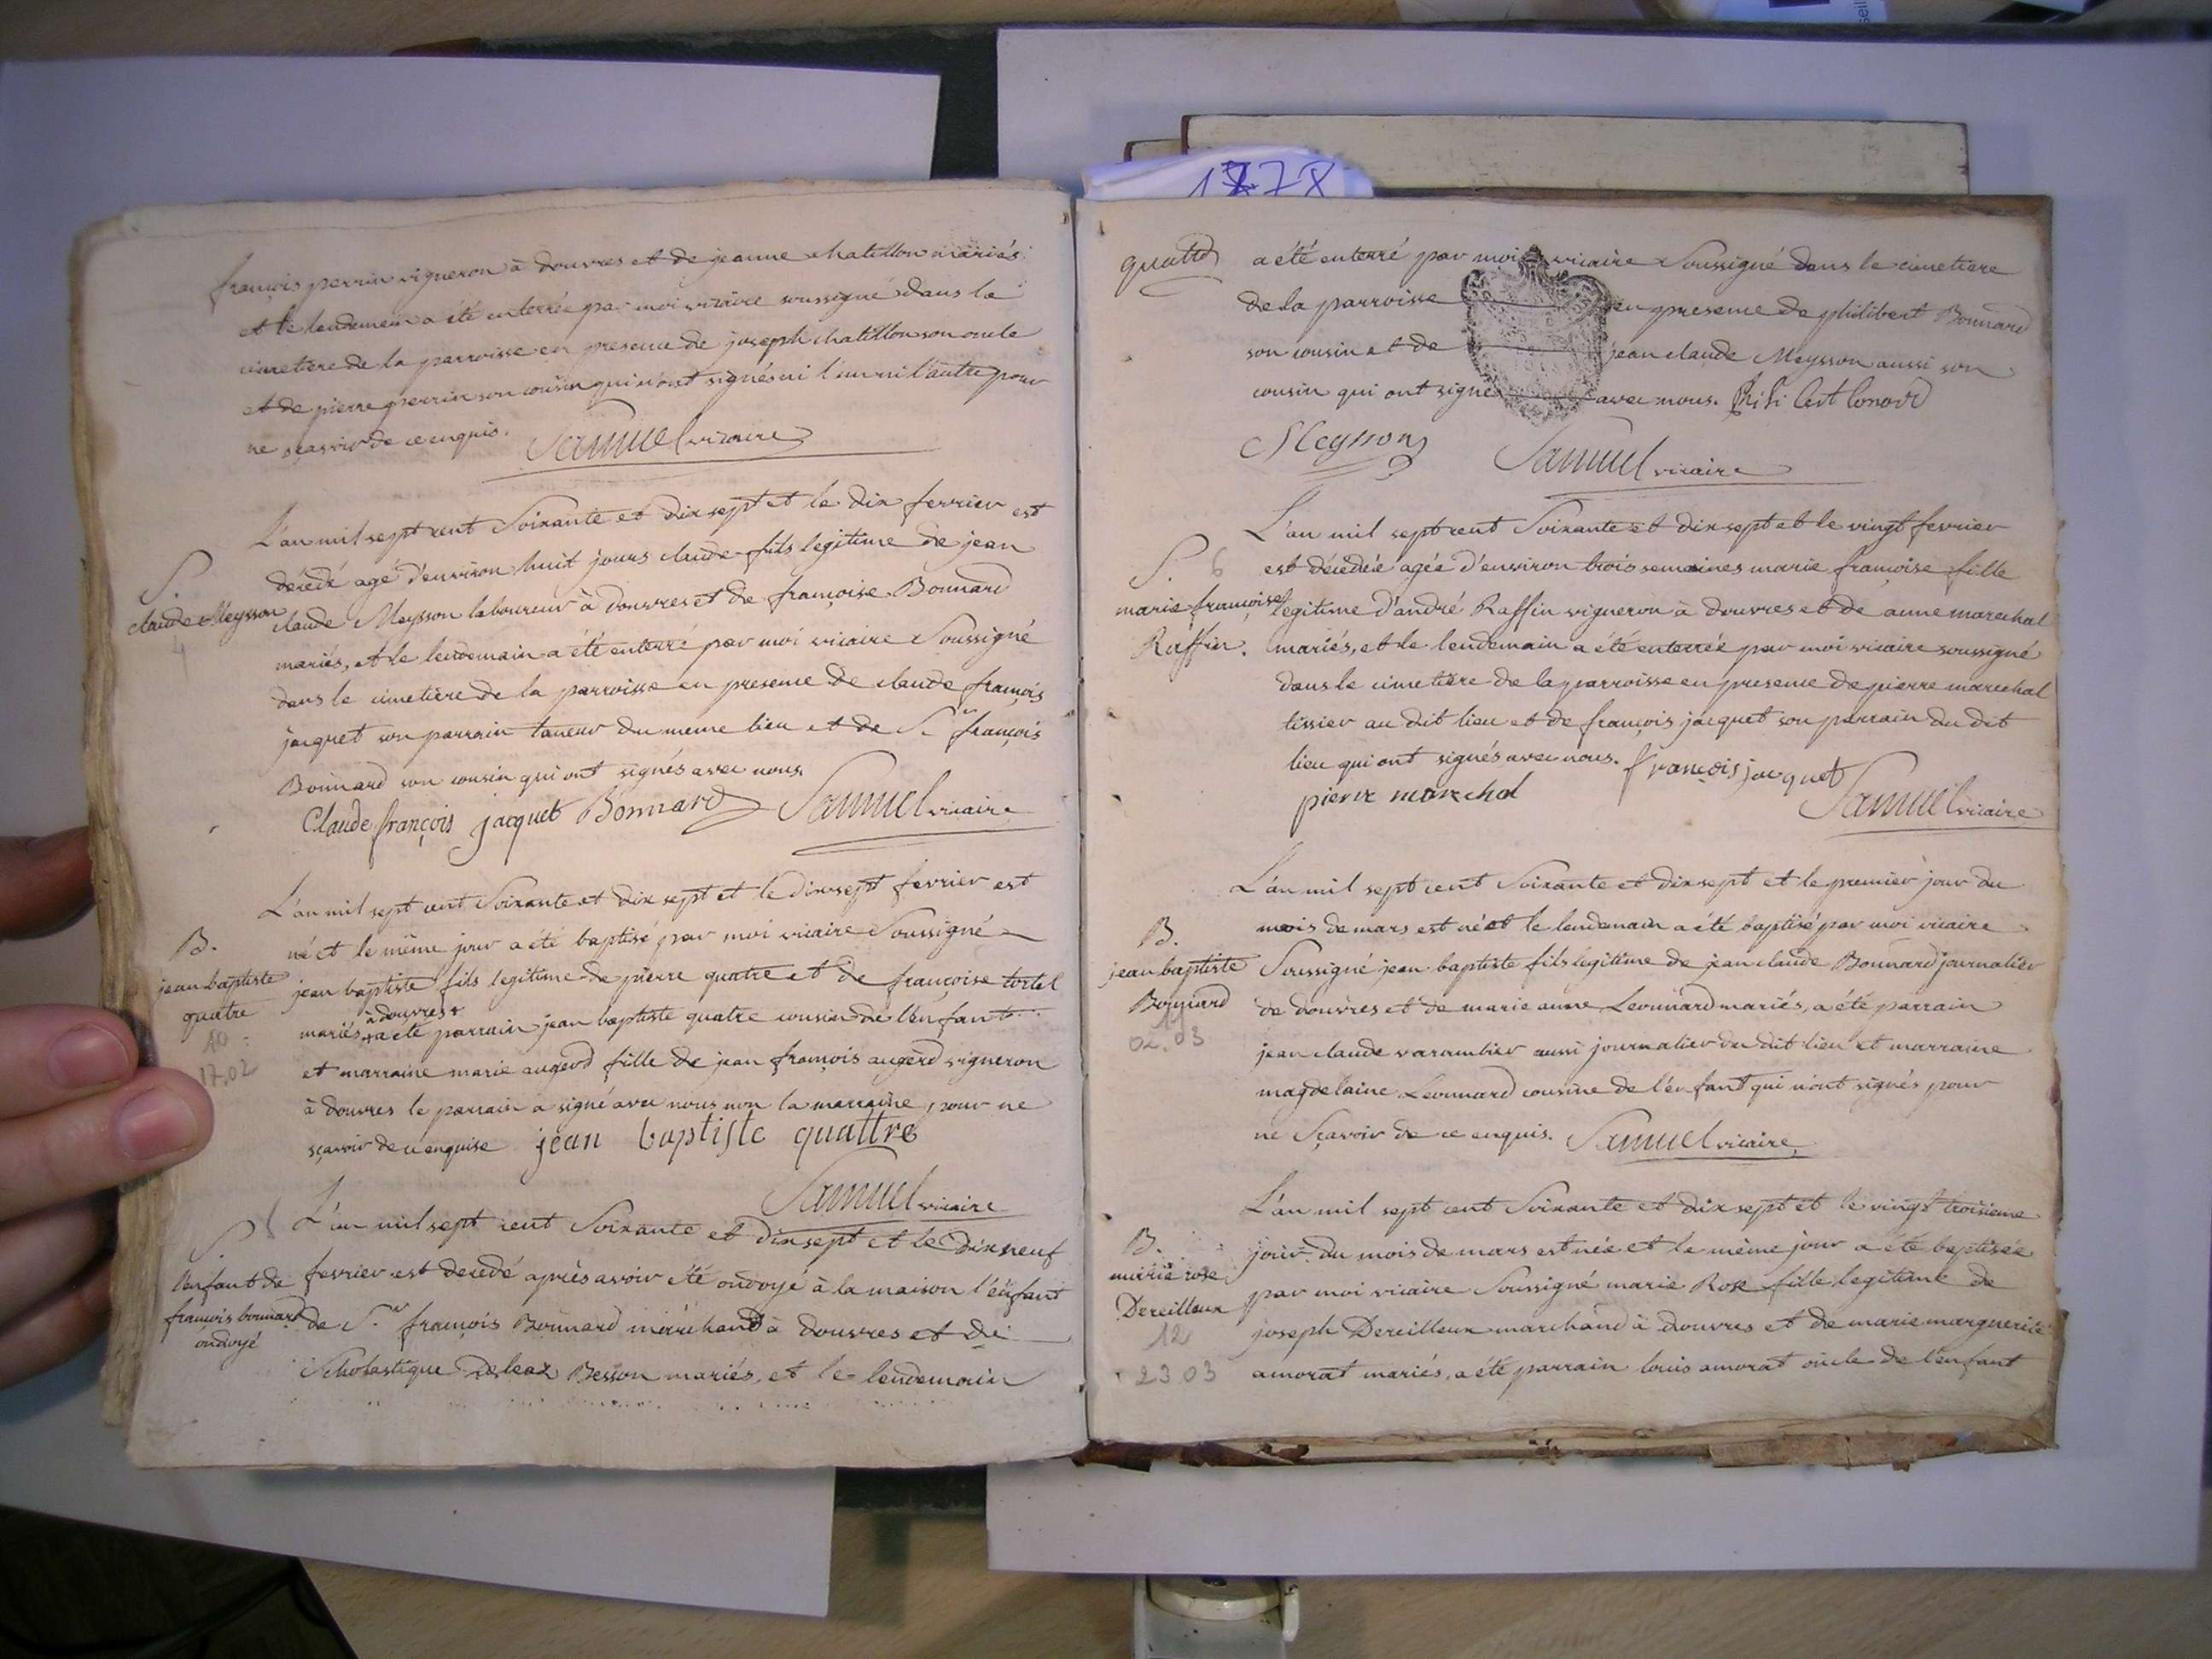 1778
françois perrin vigneron à douvres et de jeanne chatillon mariés
et le lendemain a été enterrée par moi vicaire soussigné dans le
cimetiere de la parroisse en presence de joseph chatillon son oncle
et de pierre perrin son cousin qui n'ont signés ni l'un ni l'autre pour
ne sçavoir de ce enquis. Samuel vicaire
L'an mil sept cent Soixante et dix sept et le dix fevrier est
S.
claude Meysson
4
décédé agé d'environ huit jours claude fils legitime de jean
claude Meysson laboureur à douvres et de françoise Bonnard
mariés, et le lendemain a été enterré par moi vicaire Soussigné
dans le cimetière de la parroisse en presence de claude françois
jacquet son parrain taneur du meme lieu et de Sr. françois
Bonnard son cousin qui ont signés avec nous.
Claude françois jacquet Bonnard Samuel vicaire
L'an mil sept cent Soixante et dix sept et le dix sept fevrier est
B.
jean baptiste
quatre
10
17.02
né et le même jour a été baptisé par moi vicaire Soussigné
jean baptiste fils legitime de pierre quatre et de françoise tortel
à douvres
mariés a été parrain jean baptiste quatre cousin de l'enfant
et marraine marie augerd fille de jean françois augerd vigneron
à douvres le parrain a signé avec nous non la marraine, pour ne
sçavoir de ce enquise jean baptiste quattre
Samuel vicaire
L'an mil sept cent Soixante et dix sept et le dix neuf
S.
l'enfant de
françois bonnard
ondoyé
fevrier est decedé après avoir été ondoyé à la maison l'enfant
de Sr. françois Bonnard marchand à Douvres et de
Scholastique Besson mariés, et le lendemain
quatre
a été enterré par moi vicaire Soussigné dans le cimetiere
de la parroisse en presence de philibert Bonnard
son cousin et de jean claude Meysson aussi son
cousin qui ont signé avec nous.
Meysson Samuel vicaire
L'an mil sept cent Soixante et dix sept et le vingt fevrier
S. 6
marie françoise
Raffin.
est décédée agée d'environ trois semaines marie françoise fille
legitime d'andré Raffin vigneron à douvres et de anne marechal
mariés, et le lendemain a été enterrée par moi vicaire soussigné
dans le cimetière de la parroisse en presence de pierre marechal
tissier au dit lieu et de françois jacquet son parrain du dit
lieu qui ont signés avec nous. françois jacquet
pierre marechal Samuel vicaire
L'an mil sept cent Soixante et dix sept et le premier jour du
B.
jean baptiste
Bonnard
02.03
mois de mars est né et le lendemain a été baptisé par moi vicaire
Soussigné jean baptiste fils légitime de jean claude Bonnard journalier
de douvres et de marie anne Leonnard mariés, a été parrain
jean claude varambier aussi journalier du dit lieu et marraine
magdelaine Leonnard cousine de l'enfant qui n'ont signés pour
ne Sçavoir de ce enquis. Samuel vicaire
L'an mil sept cent Soixante et dix sept et le vingt troisieme
B.
marie rose
Dereilleux
12
23.03
jour du mois de mars est née et le même jour a été baptisée
par moi vicaire Soussigné marie Rose fille legitime de
joseph Dereilleux marchand à douvres et de marie marguerite
amorat mariés, a été parrain louis amorat oncle de l'enfant